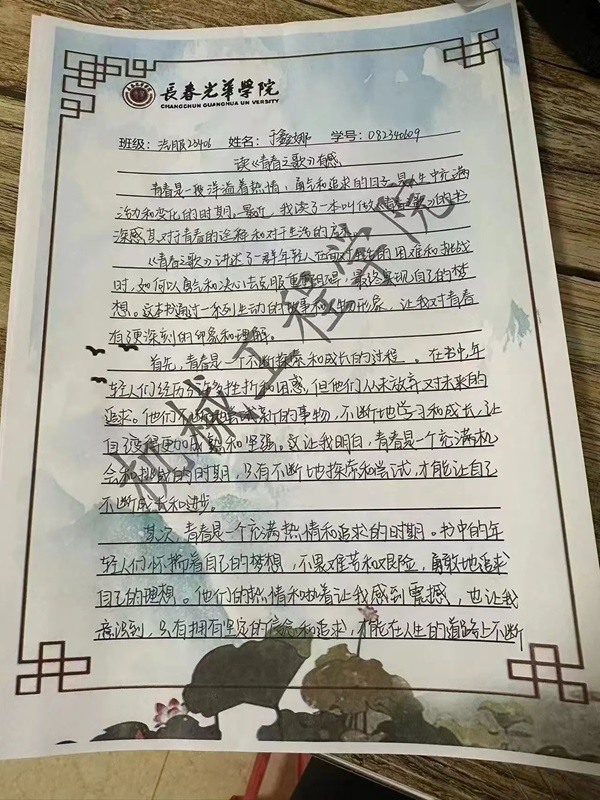 長春光華學院
CHANGCHUN GUANGHUA UNIVERSITY
班级：汽服23406 姓名：于鑫娜 学号：082340609
读《青春之歌》有感
青春是一段洋溢着热情，勇气和追求的日子，是人生中充满
活力和变化的时期。最近，我读了一本叫做《青春之歌》的书
深感其对于青春的诠释和对于生活的启示。
《青春之歌》讲述了一群年轻人在面对生活的困难和挑战
时，如何以勇气和决心去克服重重阻碍，最终实现自己的梦
想。这本书通过一系列生动的故事和人物形象，让我对青春
有了更深刻的印象和理解。
首先，青春是一个不断探索和成长的过程。在书中，年
轻人们经历了许多挫折和困惑，但他们从未放弃对未来的
追求。他们不断地尝试新的事物，不断地学习和成长，让
自己变得更加成熟和坚强。这让我明白，青春是一个充满机
会和挑战的时期，只有不断地探索和尝试，才能让自己
不断成长和进步。
其次，青春是一个充满热情和追求的时期。书中的年
轻人们怀揣着自己的梦想，不畏难苦和艰险，勇敢地追求
自己的理想。他们的热情和执着让我感到震撼，也让我
意识到，只有拥有坚定的信念和追求，才能在人生的道路上不断
机械工程学院